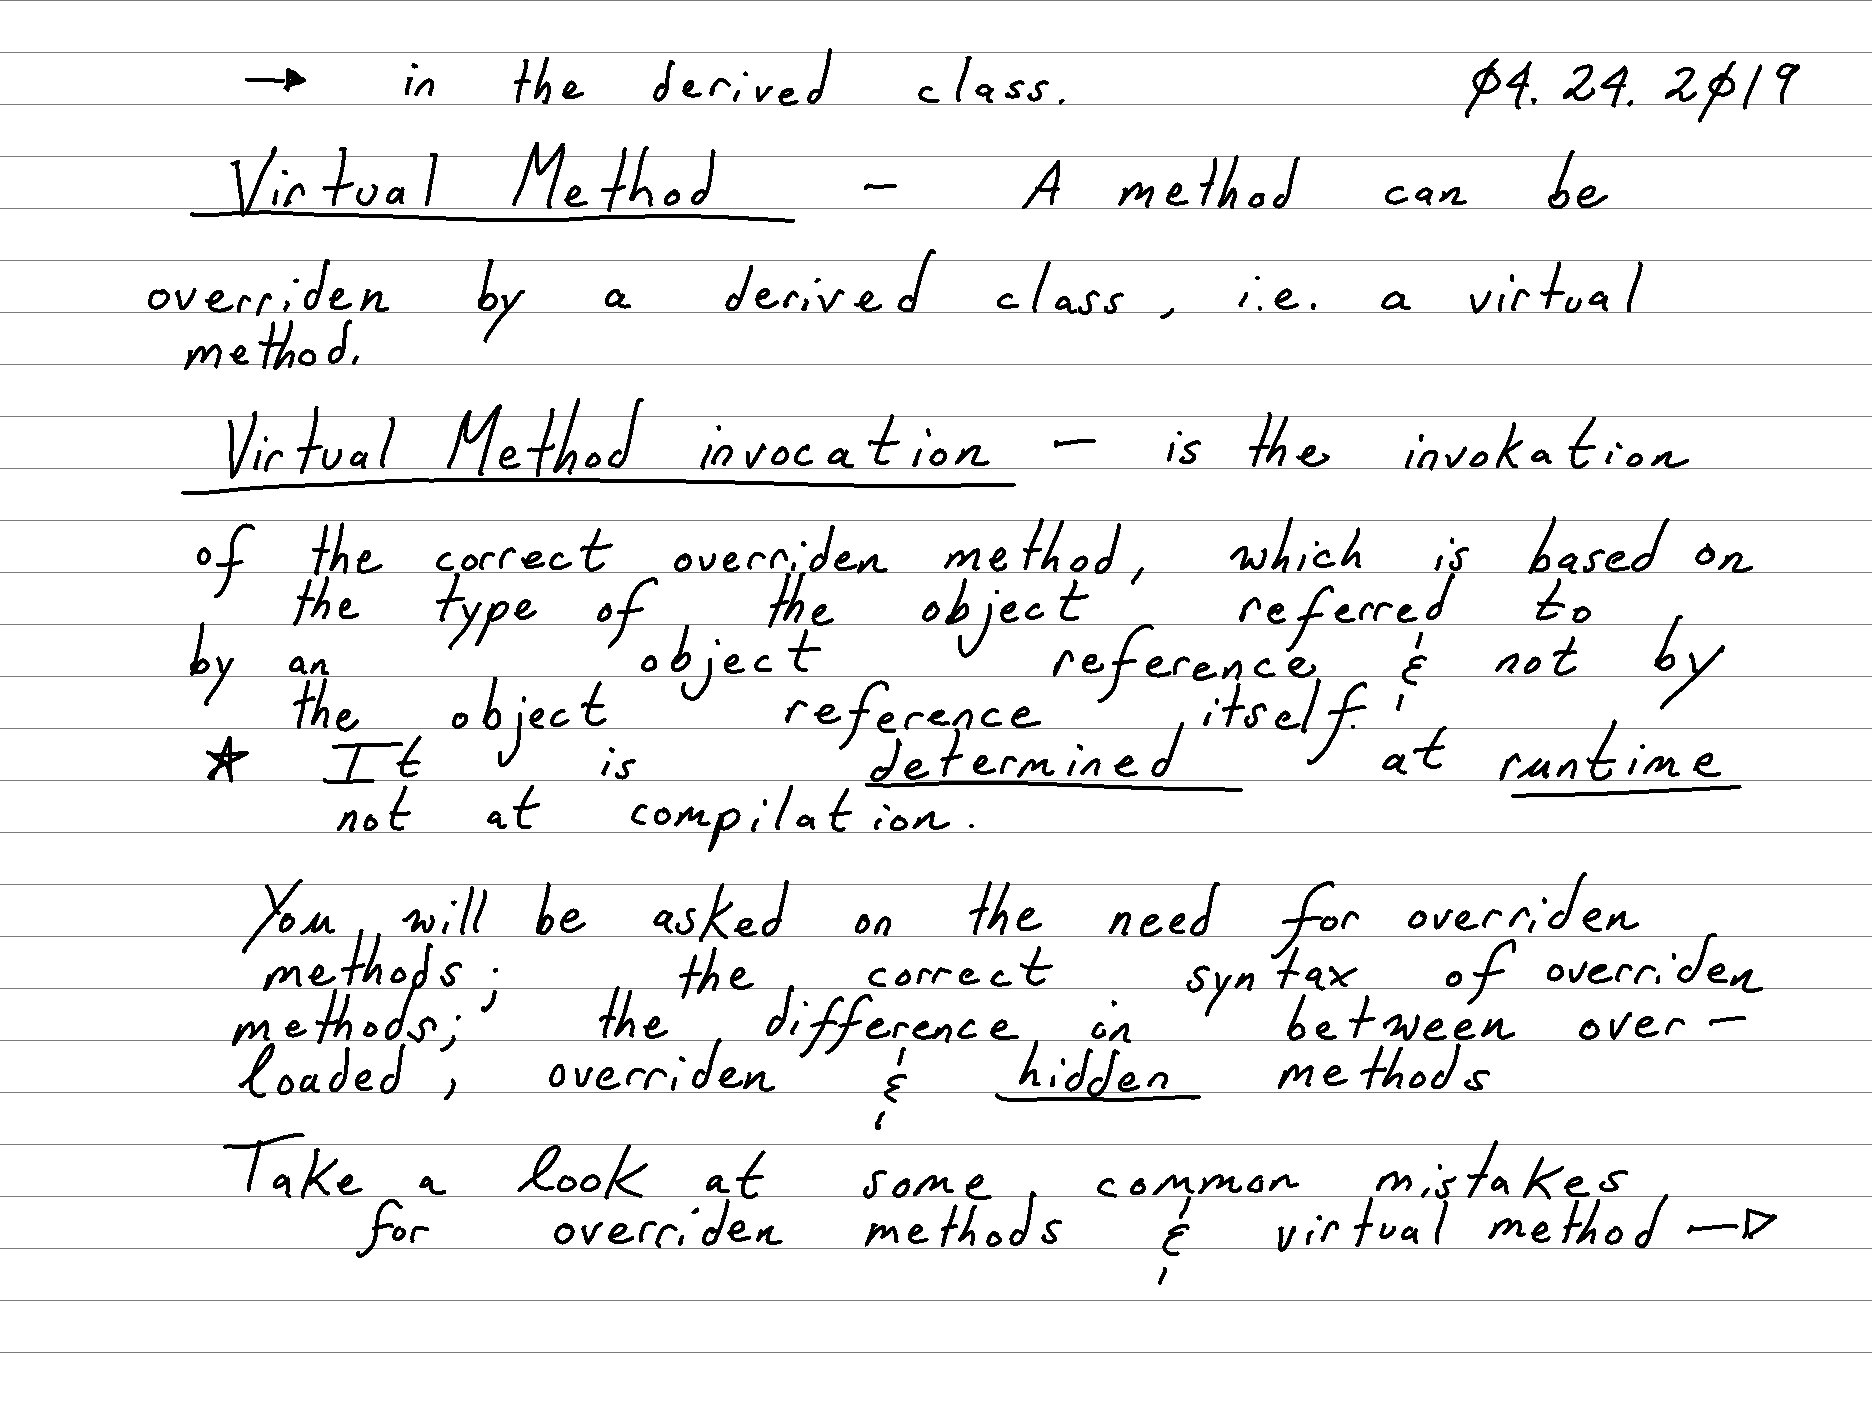 → in the derived class. 04.24.2019
Virtual Method - A method can be
overriden by a derived class, i.e. a virtual
method.
Virtual Method invocation - is the invokation
of the correct overriden method, which is based on
the type of the object referred to
by an object reference & not by
the object reference itself.
★ It is determined at runtime
not at compilation.
You will be asked on the need for overriden
methods; the correct syntax of overriden
methods; the difference in between over-
loaded, overriden & hidden methods
Take a look at some common mistakes
for overriden methods & virtual method →